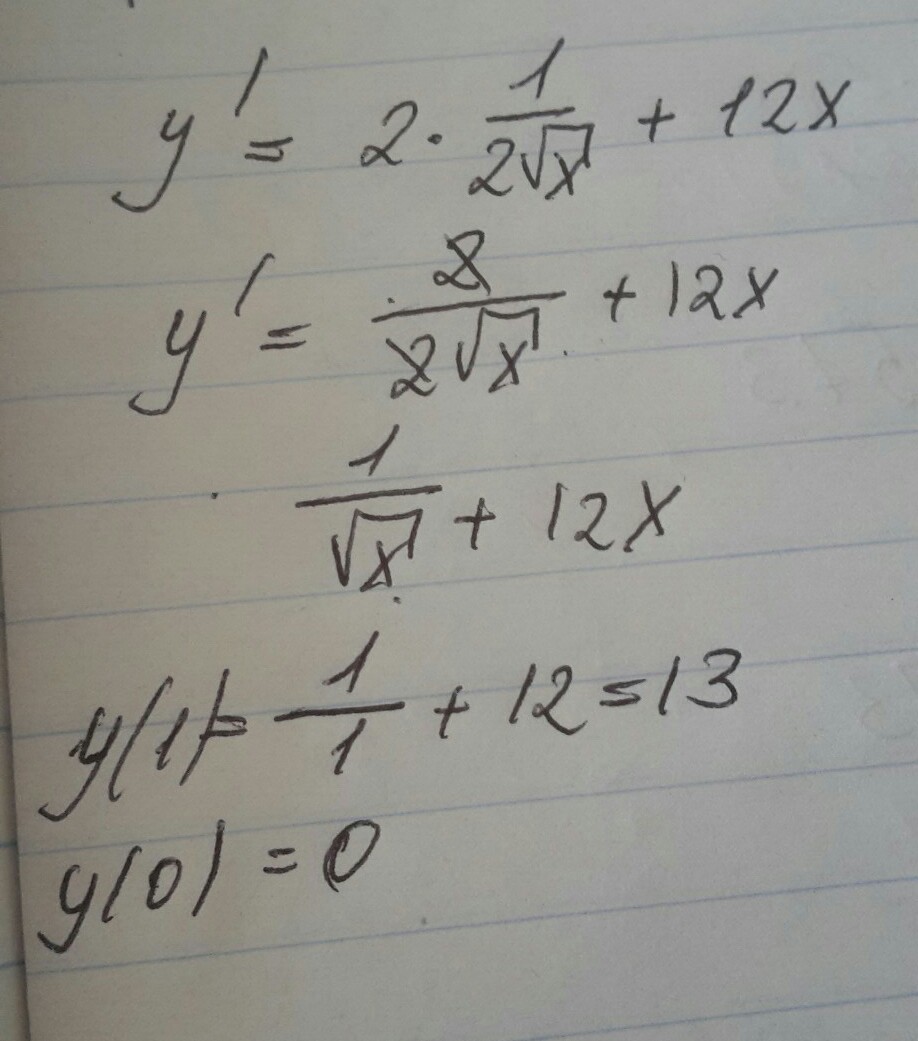 y' = 2 · 1/(2√x) + 12x
y' = 2/(2√x) + 12x
1/√x + 12x
y(1) = 1/1 + 12 = 13
y(0) = 0